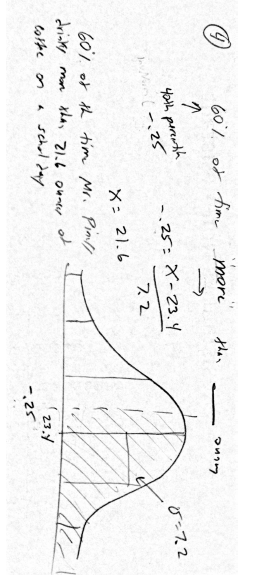 ④ 60% of time more than ___ ounces
↑
40th percentile
-.25
-.25 = X - 23.4 / 7.2
X = 21.6
60% of the time Mr. Pines
drinks more than 21.6 ounces of
coffee on a school day
σ=7.2
23.4
-.25